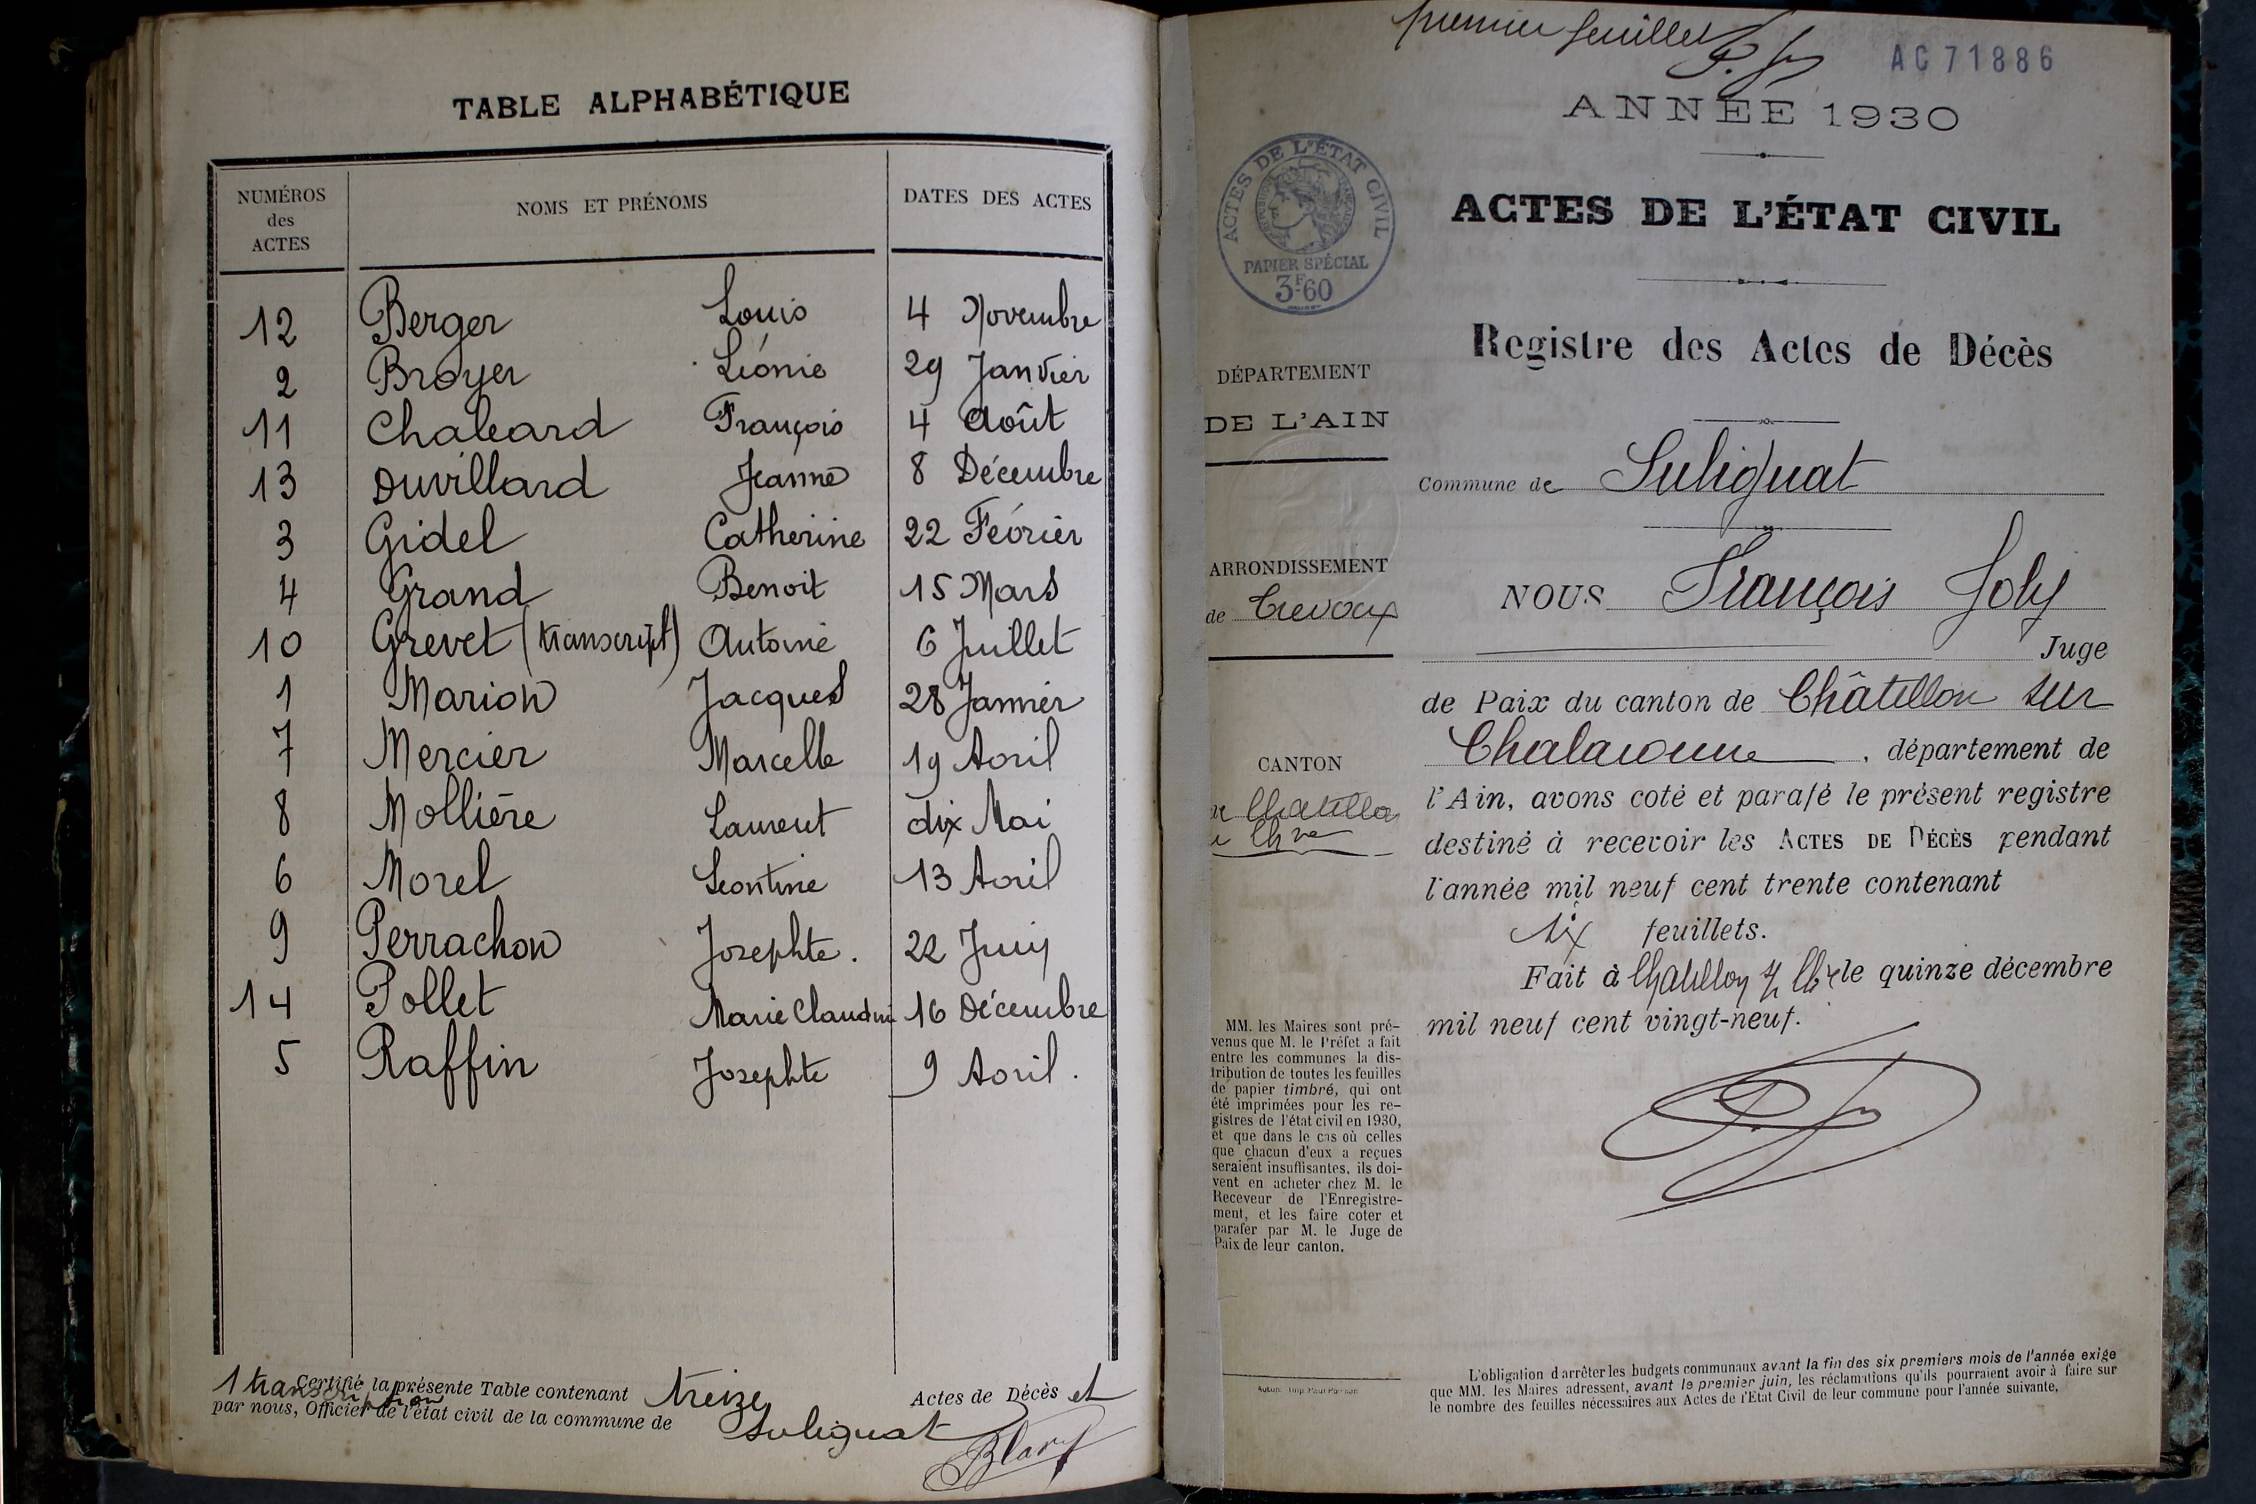 TABLE ALPHABÉTIQUE
NUMÉROS des ACTES NOMS ET PRÉNOMS DATES DES ACTES
12 Berger Louis 4 Novembre
2 Broyer Léonie 29 Janvier
11 Chaleard François 4 Août
13 Duvillard Jeanne 8 Décembre
3 Gidel Catherine 22 Février
4 Grand Benoit 15 Mars
10 Grevet (transcript) Antoine 6 Juillet
1 Marion Jacques 28 Janvier
7 Mercier Marcelle 19 Avril
8 Mollière Laurent dix Mai
6 Morel Leontine 13 Avril
9 Perrachon Josephte. 22 Juin
14 Pollet Marie Claudine 16 Décembre
5 Raffin Josephte 9 Avril.
Certifié la présente Table contenant treize Actes de Décès et
1 transcription
par nous, Officier de l'état civil de la commune de Sulignat
premier feuillet
AC 71886
ANNÉE 1930
ACTES DE L'ÉTAT CIVIL
PAPIER SPÉCIAL
3F60
ACTES DE L'ÉTAT CIVIL
Registre des Actes de Décès
DÉPARTEMENT
DE L'AIN
Commune de Sulignat
ARRONDISSEMENT
de Trevoux
NOUS François Joly
Juge
de Paix du canton de Châtillon sur
Chalaronne, département de
l'Ain, avons coté et parafé le présent registre
destiné à recevoir les ACTES DE DÉCÈS pendant
l'année mil neuf cent trente contenant
six feuillets.
Fait à Chatillon s/ Chne le quinze décembre
mil neuf cent vingt-neuf.
CANTON
de Chatillon
Chne
MM. les Maires sont pré-
venus que M. le Préfet a fait
entre les communes la dis-
tribution de toutes les feuilles
de papier timbré, qui ont
été imprimées pour les re-
gistres de l'état civil en 1930,
et que dans le cas où celles
que chacun d'eux a reçues
seraient insuffisantes, ils doi-
vent en acheter chez M. le
Receveur de l'Enregistre-
ment, et les faire coter et
parafer par M. le Juge de
Paix de leur canton.
L'obligation d'arrêter les budgets communaux avant la fin des six premiers mois de l'année exige
que MM. les Maires adressent, avant le premier juin, les réclamations qu'ils pourraient avoir à faire sur
le nombre des feuilles nécessaires aux Actes de l'État Civil de leur commune pour l'année suivante.